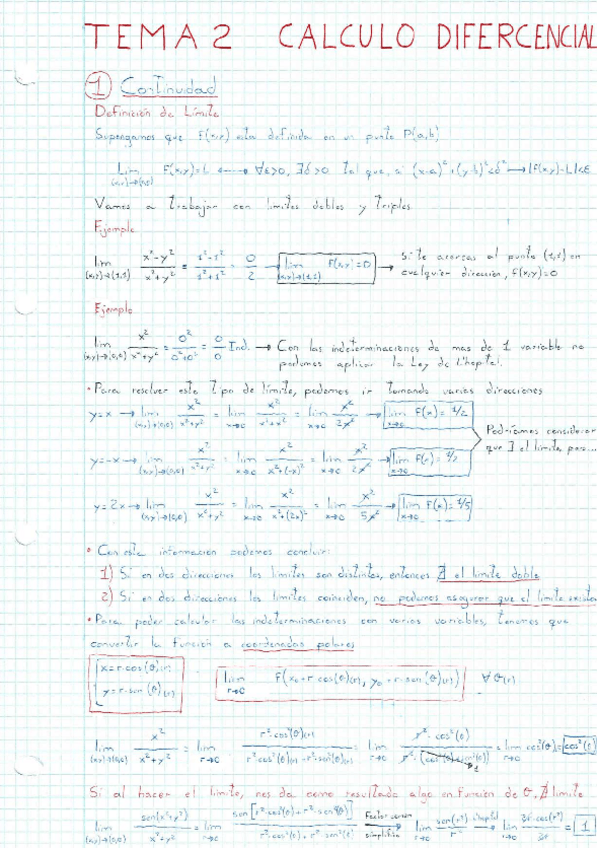 TEMA 2 CALCULO DIFERCENCIAL
1 Continuidad
Definición de Límite
Supongamos que F(x,y) esta definida en un punto P(a,b)
Lim F(x,y)=L ⟷ ∀ε>0, ∃δ>0 tal que, si (x-a)²+(y-b)²<δ² → |F(x,y)-L|<ε
Vamos a trabajar con limites dobles y triples
Ejemplo
lim (x,y)→(1,1) x²-y²/x²+y² = 1²-1²/1²+1² = 0/2 → lim (x,y)→(1,1) F(x,y)=0 → Si te acercas al punto (1,1) en
cualquier dirección, F(x,y)=0
Ejemplo
lim (x,y)→(0,0) x²/x²+y² = 0²/0²+0² = 0/0 Ind. → Con las indeterminaciones de mas de 1 variable no
podemos aplicar la Ley de L'hopital.
• Para resolver este tipo de límite, podemos ir tomando varias direcciones
y=x → lim (x,y)→(0,0) x²/x²+y² = lim x→0 x²/x²+x² = lim x→0 x²/2x² → lim x→0 F(x)=1/2
Podríamos considerar
que ∃ el limite, pero...
y=-x → lim (x,y)→(0,0) x²/x²+y² = lim x→0 x²/x²+(-x)² = lim x→0 x²/2x² → lim x→0 F(x)=1/2
y=2x → lim (x,y)→(0,0) x²/x²+y² = lim x→0 x²/x²+(2x)² = lim x→0 x²/5x² → lim x→0 F(x)=1/5
• Con esta información podemos concluir:
1) Si en dos direcciones los limites son distintos, entonces ∄ el limite doble
2) Si en dos direcciones los limites coinciden, no podemos asegurar que el limite exista
• Para poder calcular las indeterminaciones con varias variables, tenemos que
convertir la función a coordenadas polares
x=r·cos(θ)(r)
y=r·sen(θ)(r)
lim r→0 F(x₀+r·cos(θ)(r), y₀+r·sen(θ)(r)) ∀θ(r)
lim (x,y)→(0,0) x²/x²+y² = lim r→0 r²·cos²(θ)(r)/r²cos²(θ)(r)+r²·sen²(θ)(r) = lim r→0 r²·cos²(θ)/r²·(cos²(θ)+sen²(θ)) 1 = lim r→0 cos²(θ) = cos²(θ)
Si al hacer el limite, nos da como resultado algo en función de θ, ∄ limite
lim (x,y)→(0,0) sen(x²+y²)/x²+y² = lim r→0 sen[r²·cos²(θ)+r²·sen²(θ)]/r²·cos²(θ)+r²·sen²(θ) simplifica lim r→0 sen(r²)/r² L'hopital lim r→0 2r·cos(r²)/2r = 1